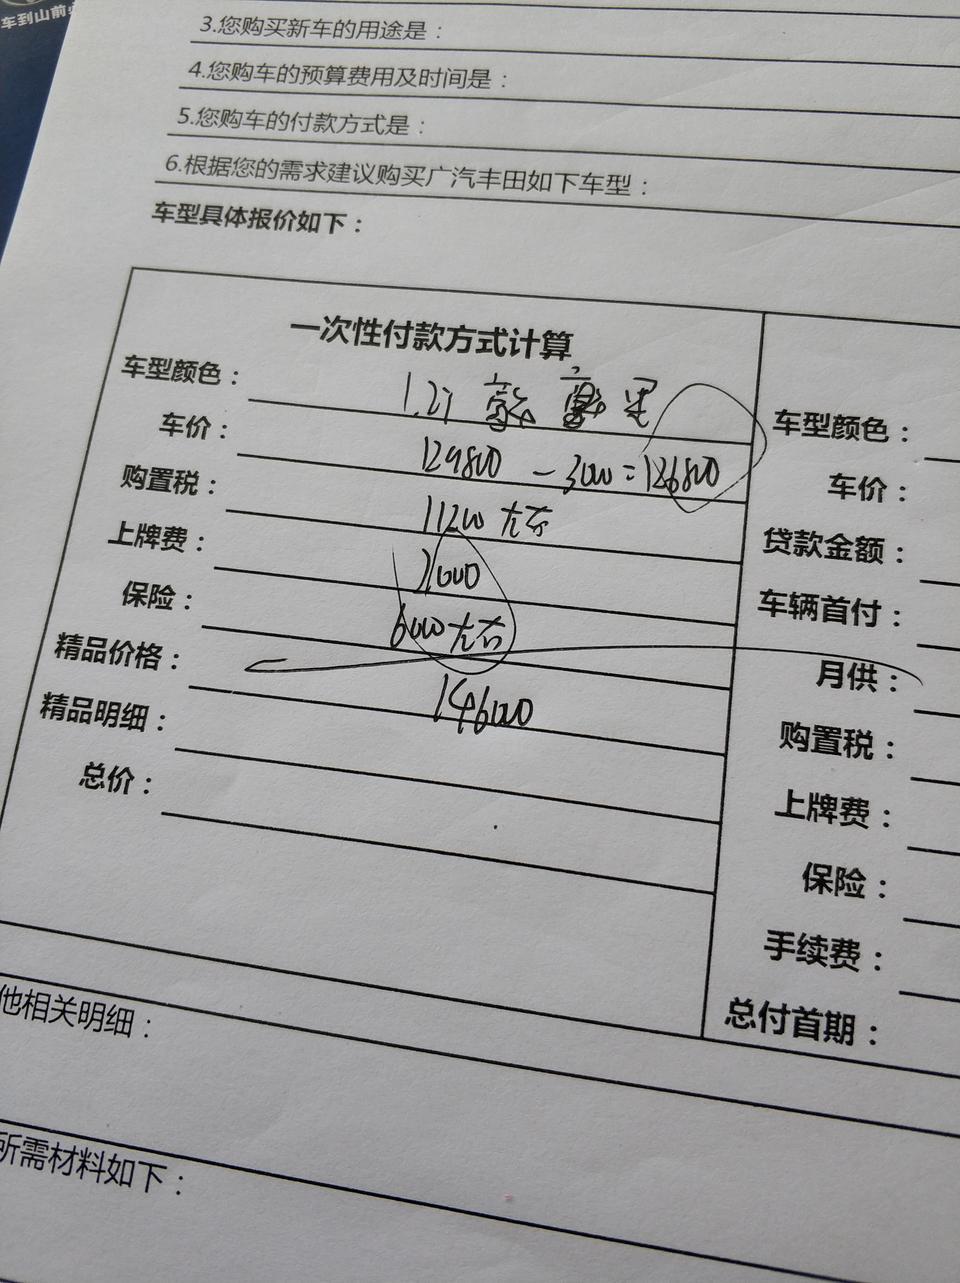 车到山前
3.您购买新车的用途是：
4.您购车的预算费用及时间是：
5.您购车的付款方式是：
6.根据您的需求建议购买广汽丰田如下车型：
车型具体报价如下：
一次性付款方式计算
车型颜色： 1.2T 豪
车价： 129800 - 3000 = 126800
购置税： 11200 左右
上牌费： 1000
保险： 6000 左右
精品价格：
146000
精品明细：
总价：
车型颜色：
车价：
贷款金额：
车辆首付：
月供：
购置税：
上牌费：
保险：
手续费：
总付首期：
他相关明细：
所需材料如下：